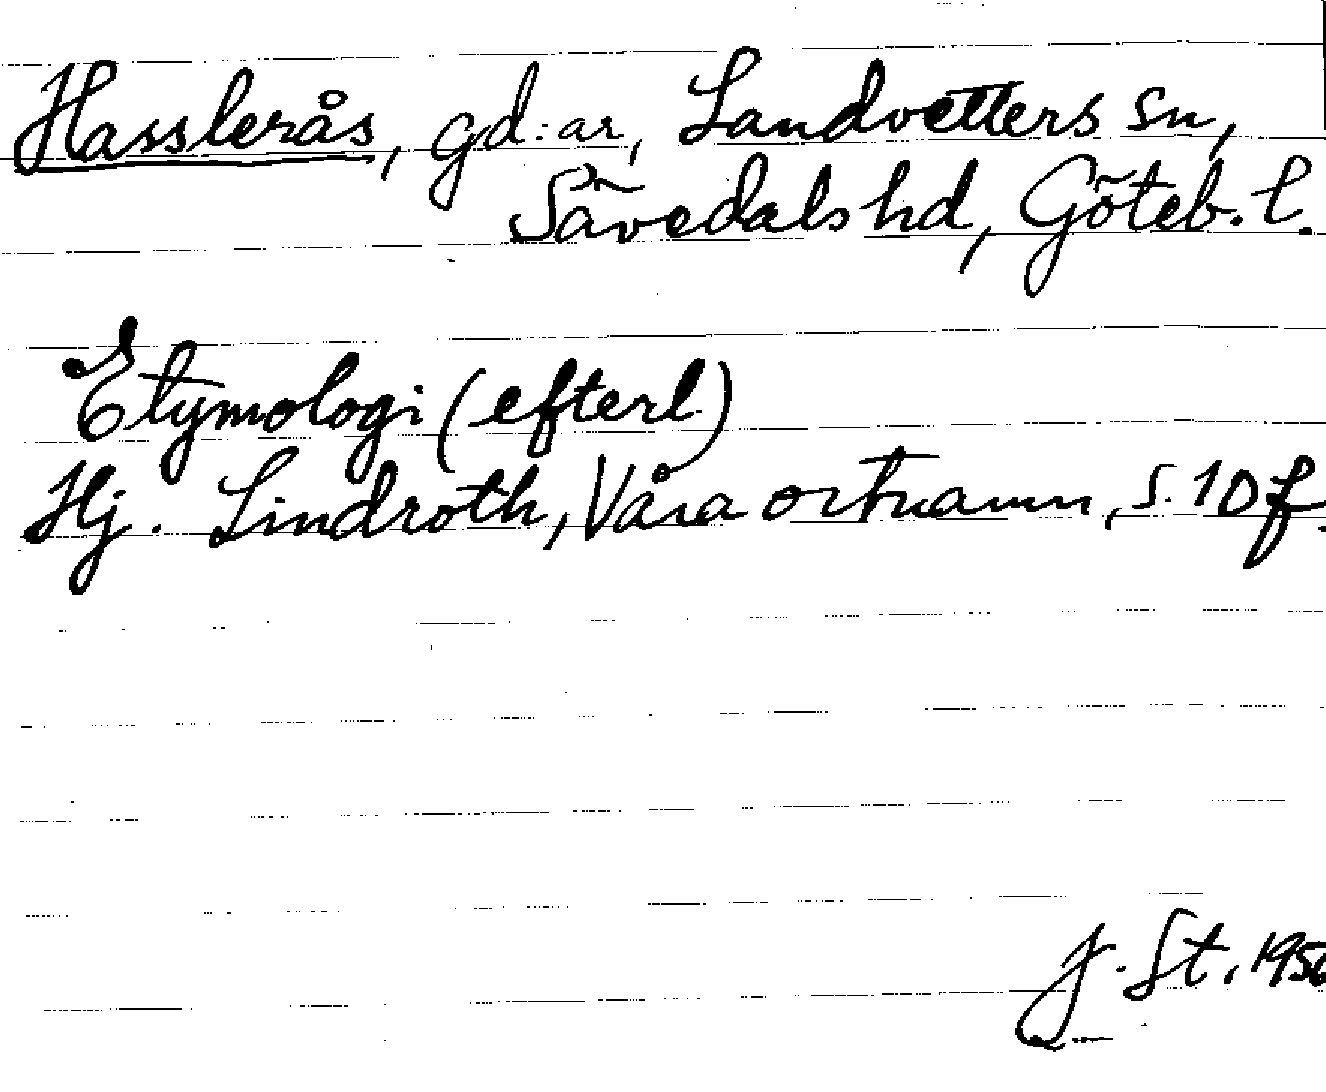 Hasslerås, gd:ar, Landvetters sn,
Sävedals hd, Göteb. l.
Etymologi (efterl.)
Hj. Lindroth, Våra ortnamn, s. 10 f.
J. St. 1956